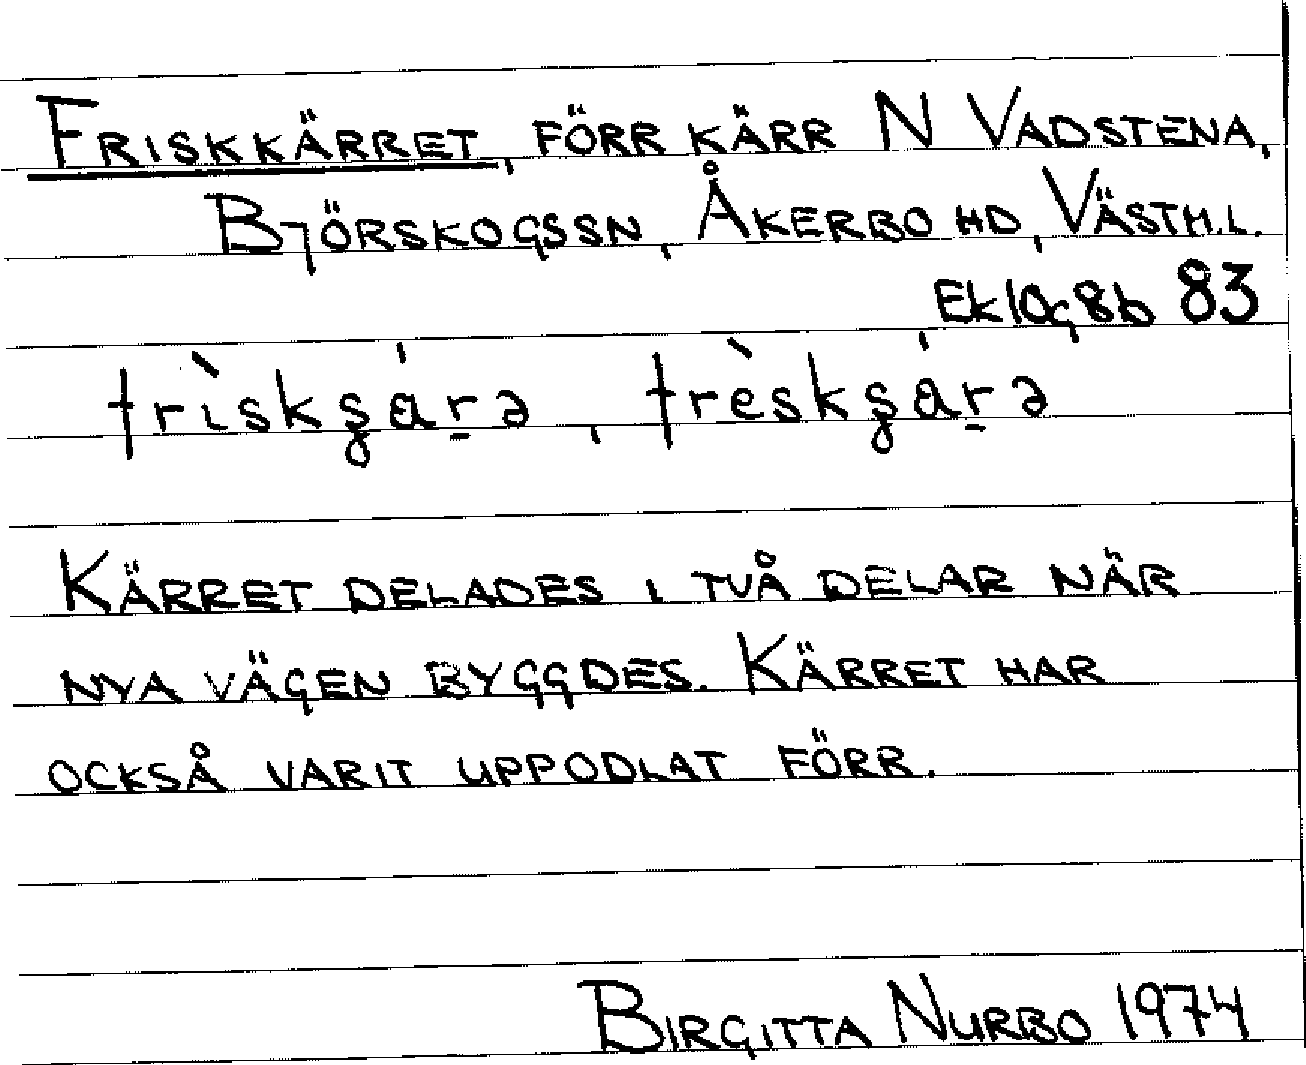 FRISKKÄRRET, FÖRR KÄRR N VADSTENA,
BJÖRSKOGSSN, ÅKERBO HD, VÄSTM.L.
Ek 10g8b 83
KÄRRET DELADES I TVÅ DELAR NÄR
NYA VÄGEN BYGGDES. KÄRRET HAR
OCKSÅ VARIT UPPODLAT FÖRR.
BIRGITTA NURBO 1974